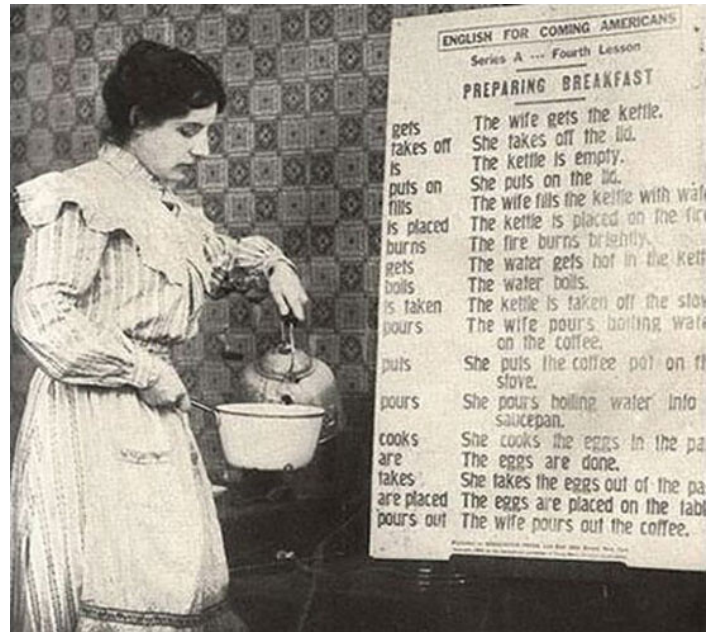 ENGLISH FOR COMING AMERICANS
Series A --- Fourth Lesson
PREPARING BREAKFAST
gets The wife gets the kettle.
takes off She takes off the lid.
is The kettle is empty.
puts on She puts on the lid.
fills The wife fills the kettle with
is placed The kettle is placed on the fire
burns The fire burns brightly.
gets The water gets hot in the
boils The water boils.
is taken The kettle is taken off the
pours The wife pours boiling
on the coffee.
puts She puts the coffee pot on
stove.
pours She pours boiling water into
saucepan.
cooks She cooks the eggs in the
are The eggs are done.
takes She takes the eggs out of the
are placed The eggs are placed on the
pours out The wife pours out the coffee.